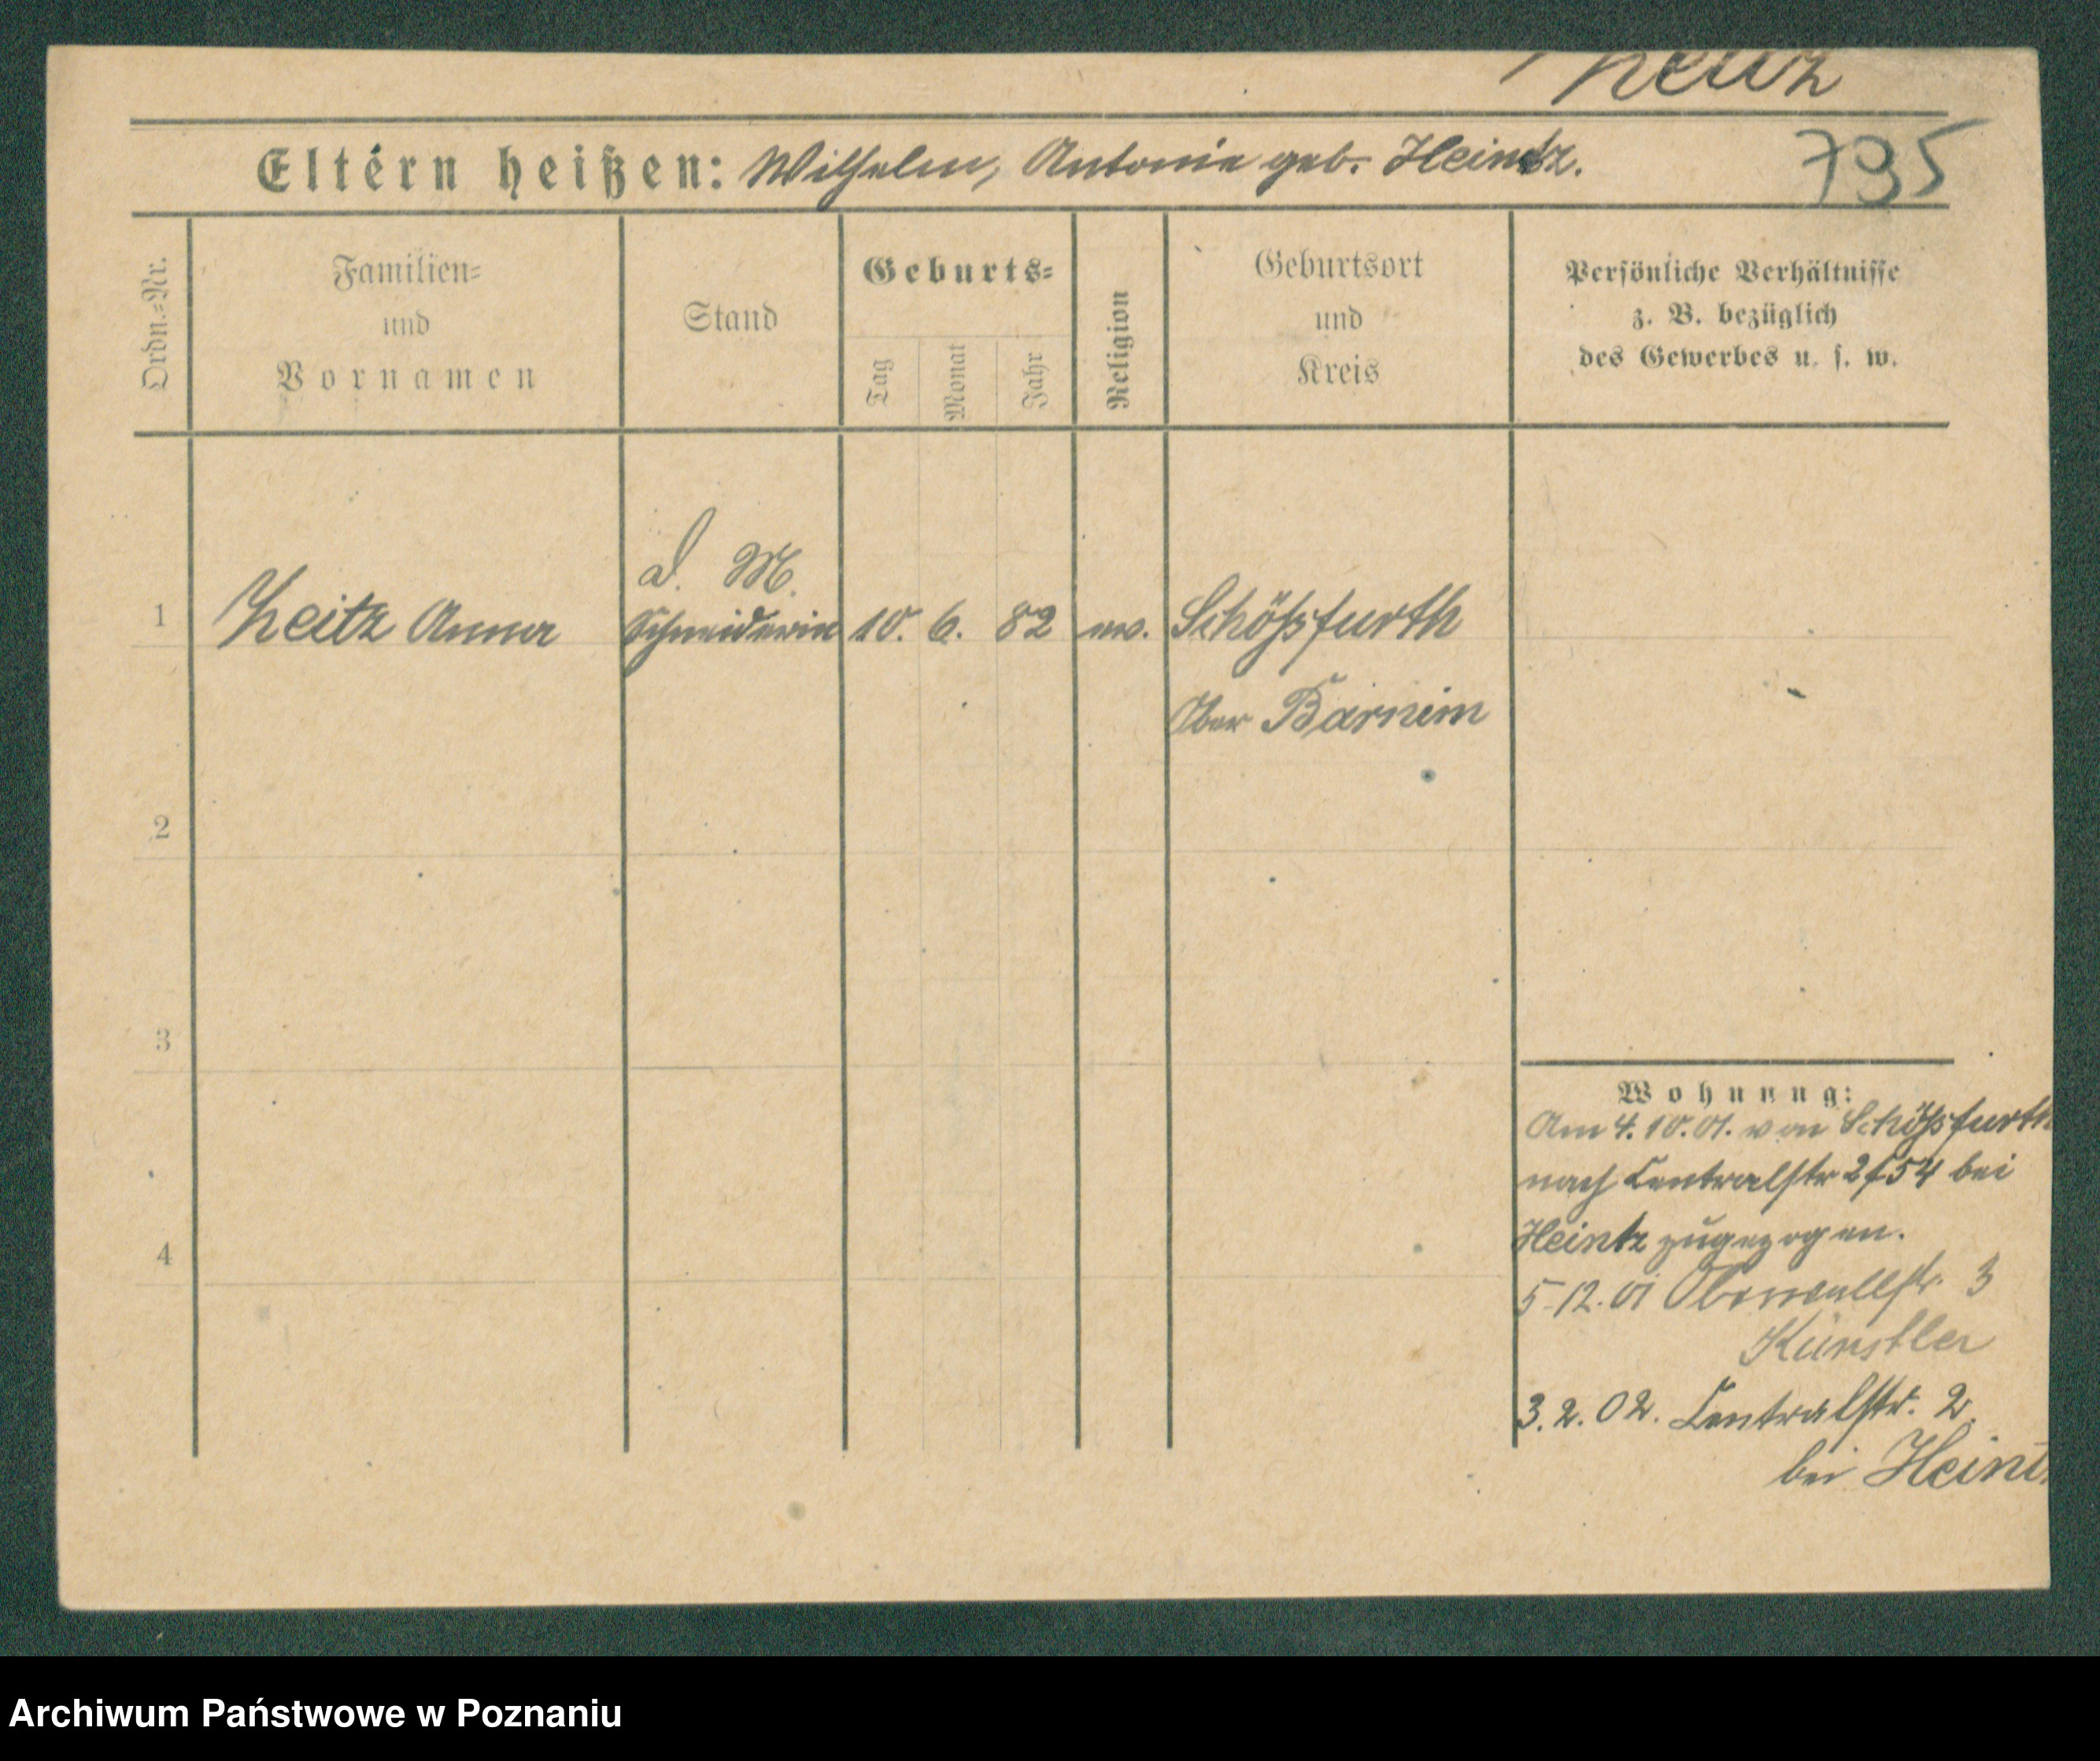 Zeitz
Eltern heißen: Wilhelm, Antonie geb. Heintz.
795
Ordn.=Nr.
Familien=
und
Vornamen
Stand
Geburts=
Tag
Monat
Jahr
Religion
Geburtsort
und
Kreis
Persönliche Verhältnisse
z. B. bezüglich
des Gewerbes u. s. w.
d. M.
1 Zeitz Anna Schneiderin 10. 6. 82 ev. Schöpfurth
Ober Barnim
2
3
4
Wohnung:
Am 4.10.01. von Schöpfurth
nach Centralstr 2/54 bei
Heintz zugezogen.
5-12.01 Oberwallstr. 3
Künstler
3.2.02. Centralstr. 2.
bei Heint
Archiwum Państwowe w Poznaniu